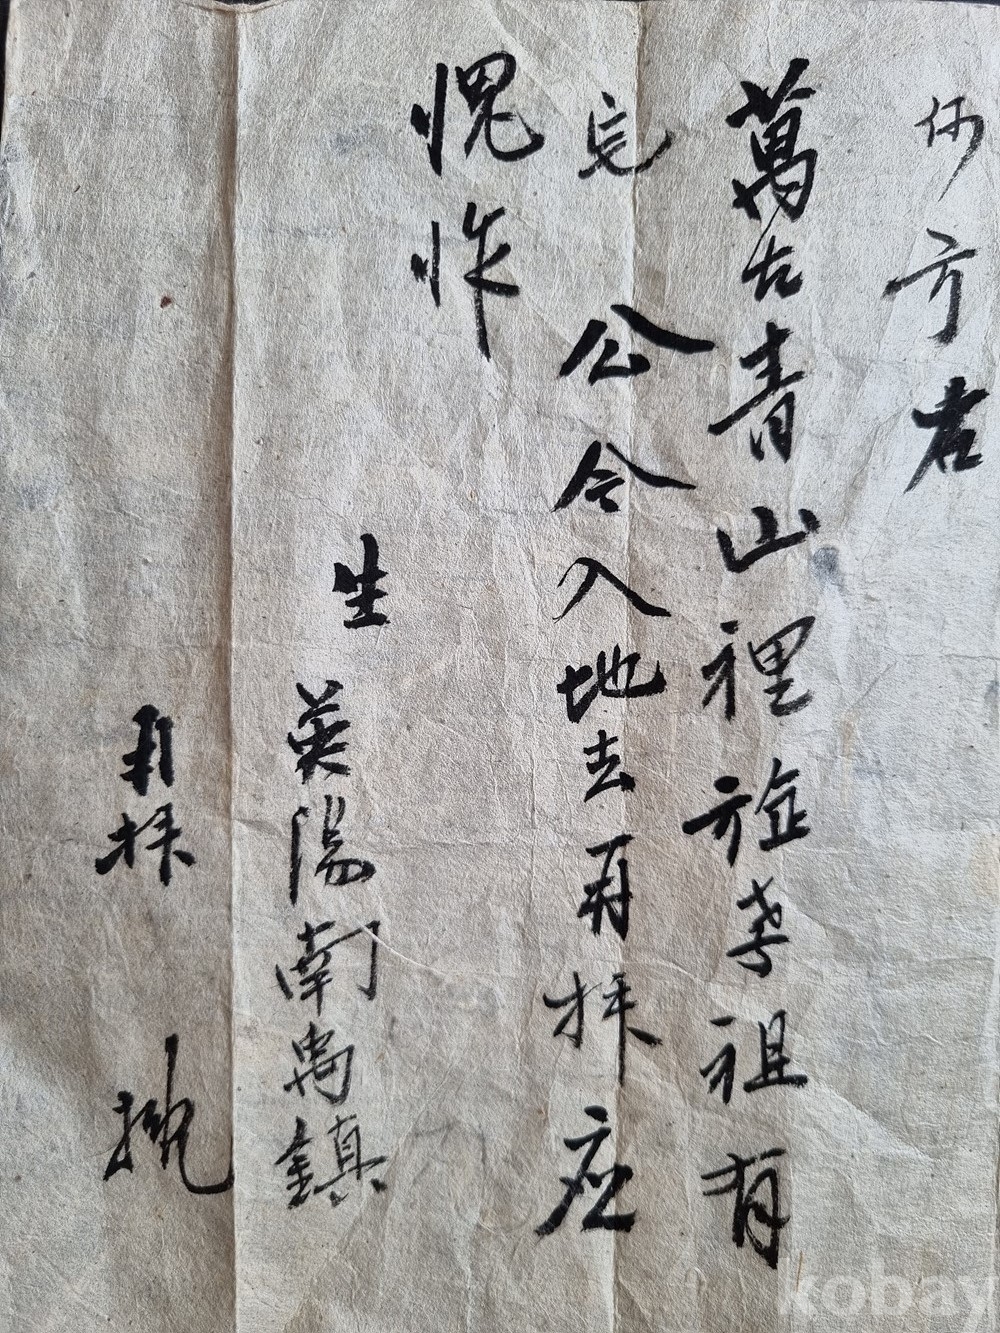 方
萬古青山裡旌孝祖有
宅公今入地去再拜应
愧怍
生
英陽南禹鎮
再拜 挽
kobay